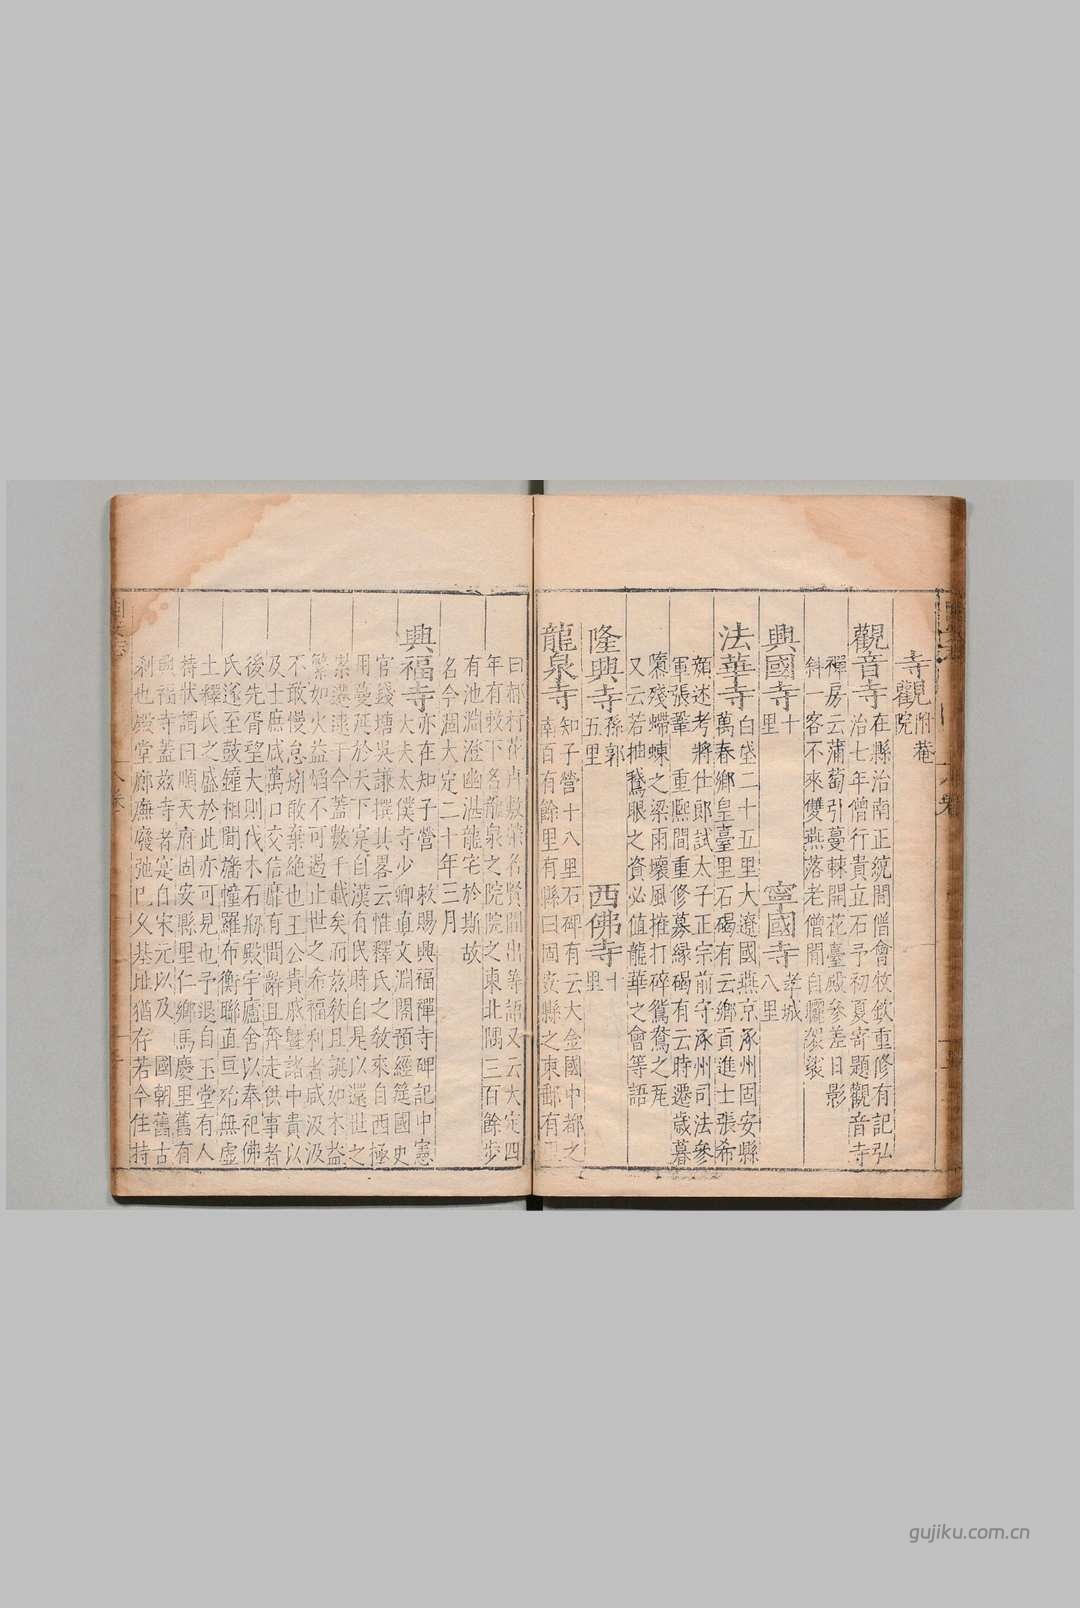 寺觀附菴院
觀音寺在縣治南正統間僧會牧欽重修有記弘
治七年僧行貴立石予初夏寄題觀音寺
禪房云蒲萄引蔓棘開花臺殿參差日影
斜一客不來雙燕落老僧閒自曬袈裟
興國寺十里
寧國寺孝城八里
法華寺白岱二十五里大遼國燕京涿州固安縣
萬春鄉皇臺里石碣有云鄉貢進士張希
頻述考將仕郎試太子正宗前守涿州司法參
軍張鞏 重熙間重修募緣碣有云時遷歲暮
隳殘螮蝀之梁雨壞風摧打碎鴛鴦之尾
又云若抽鵝眼之資必值龍華之會等語
隆興寺孫郭五里
西佛寺十里
龍泉寺知子營十八里石碑有云大金國中都之
南百有餘里有縣曰固安縣之東鄙有
曰郝村花卉敷榮名賢間出等語又云大定四
年有敕下名龍泉之院院之東北隅三百餘步
有池淵澄幽湛龍宅於斯故
名今涸大定二十年三月
興福寺亦在知子營 敕賜興福禪寺碑記中憲
大夫太僕寺少卿直文淵閣預經筵國史
官錢塘吳謙撰其畧云惟釋氏之教來自西極
用蔓延於天下寔自漢有民時自是以還世之
崇遷逮于今蓋數千載矣而茲教且誕如木益
繁如火益熖不可遏止世之希福利者咸汲汲
不敢慢怠矧敢棄絶也王公貴戚曁諸中貴以
及士庶咸萬口交信靡有間辭且奔走供事者
後先胥望大則伐木石剏殿宇廬舍以奉祀佛
氏遂至鼓鐘相聞旛幢羅布衡聯直亘殆無虛
土釋氏之盛於此亦可見也予退自玉堂有人
持狀謂曰順天府固安縣里仁鄉馬慶里舊有
興福寺蓋茲寺者寔自宋元以及 國朝舊古
刹也殿堂廊廡廢弛已久基址猶存若今住持